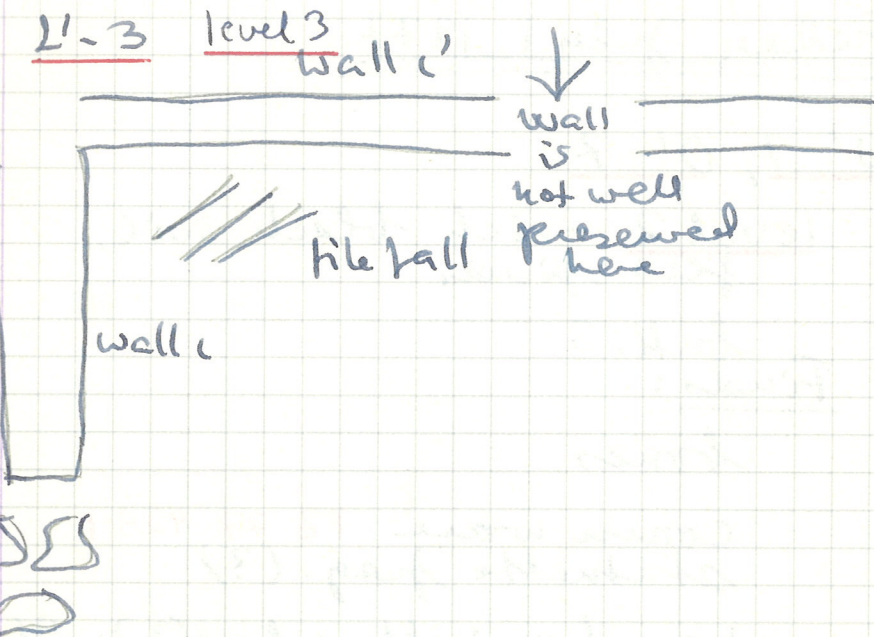 L'-3 level 3
wall c'
wall
is
not well
preserved
here
tile fall
wall c